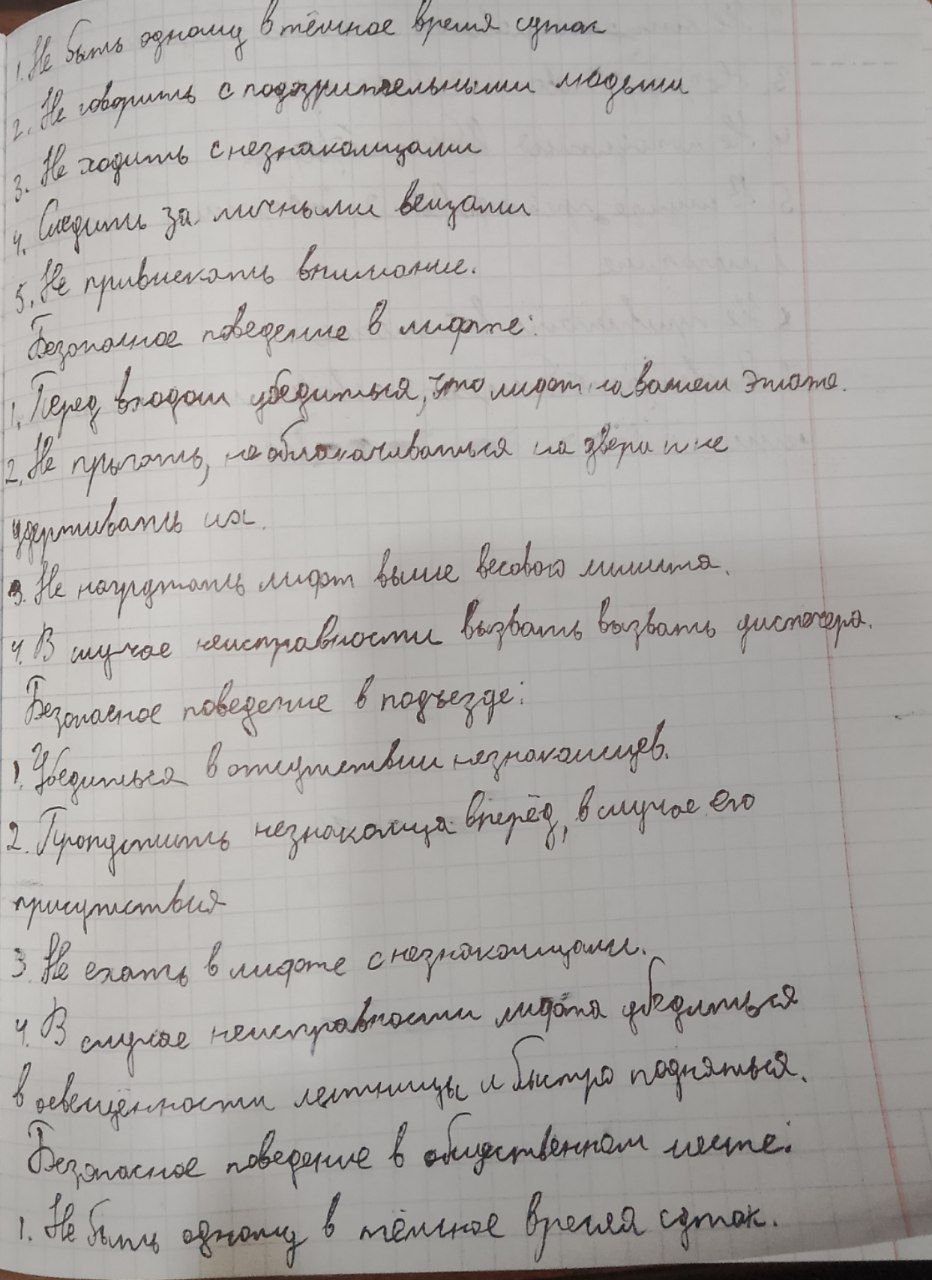 1. Не быть одному в тёмное время суток
2. Не говорить с подозрительными людьми
3. Не ходить с незнакомцами
4. Следить за личными вещами
5. Не привлекать внимание.
Безопасное поведение в лифте:
1. Перед входом убедиться, что лифт на вашем этаже.
2. Не прыгать, не облокачиваться на двери и не
удерживать их.
3. Не нагружать лифт выше весового лимита.
4. В случае неисправности вызвать вызвать диспечера.
Безопасное поведение в подъезде:
1. Убедиться в отсутствии незнакомцев.
2. Пропустить незнакомца вперёд, в случае его
присутствия
3. Не ехать в лифте с незнакомцами.
4. В случае неисправности лифта убедиться
в освещённости лестницы и быстро подняться.
Безопасное поведение в общественном месте:
1. Не быть одному в тёмное время суток.